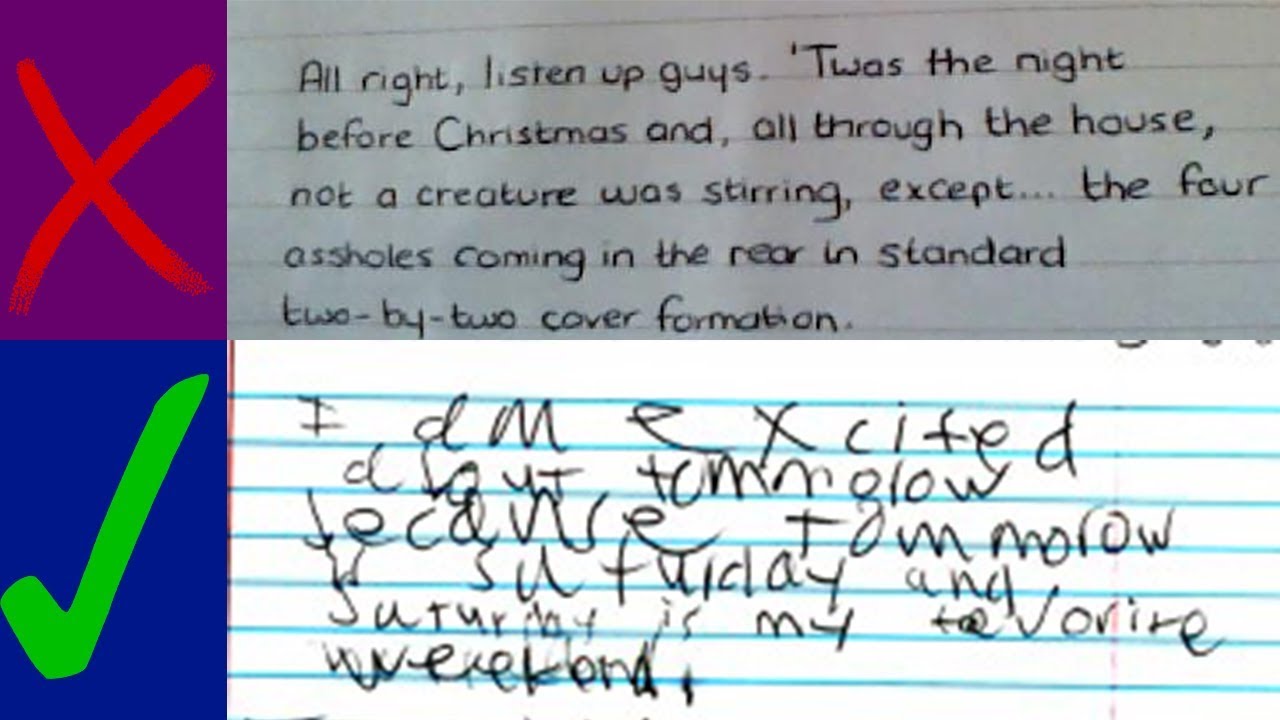 All right, listen up guys. 'Twas the night
before Christmas and, all through the house,
not a creature was stirring, except... the four
assholes coming in the rear in standard
two-by-two cover formation.
I am excited
about tommorow
becanse tommorow
is suturday and
suturday is my favorite
weekend.